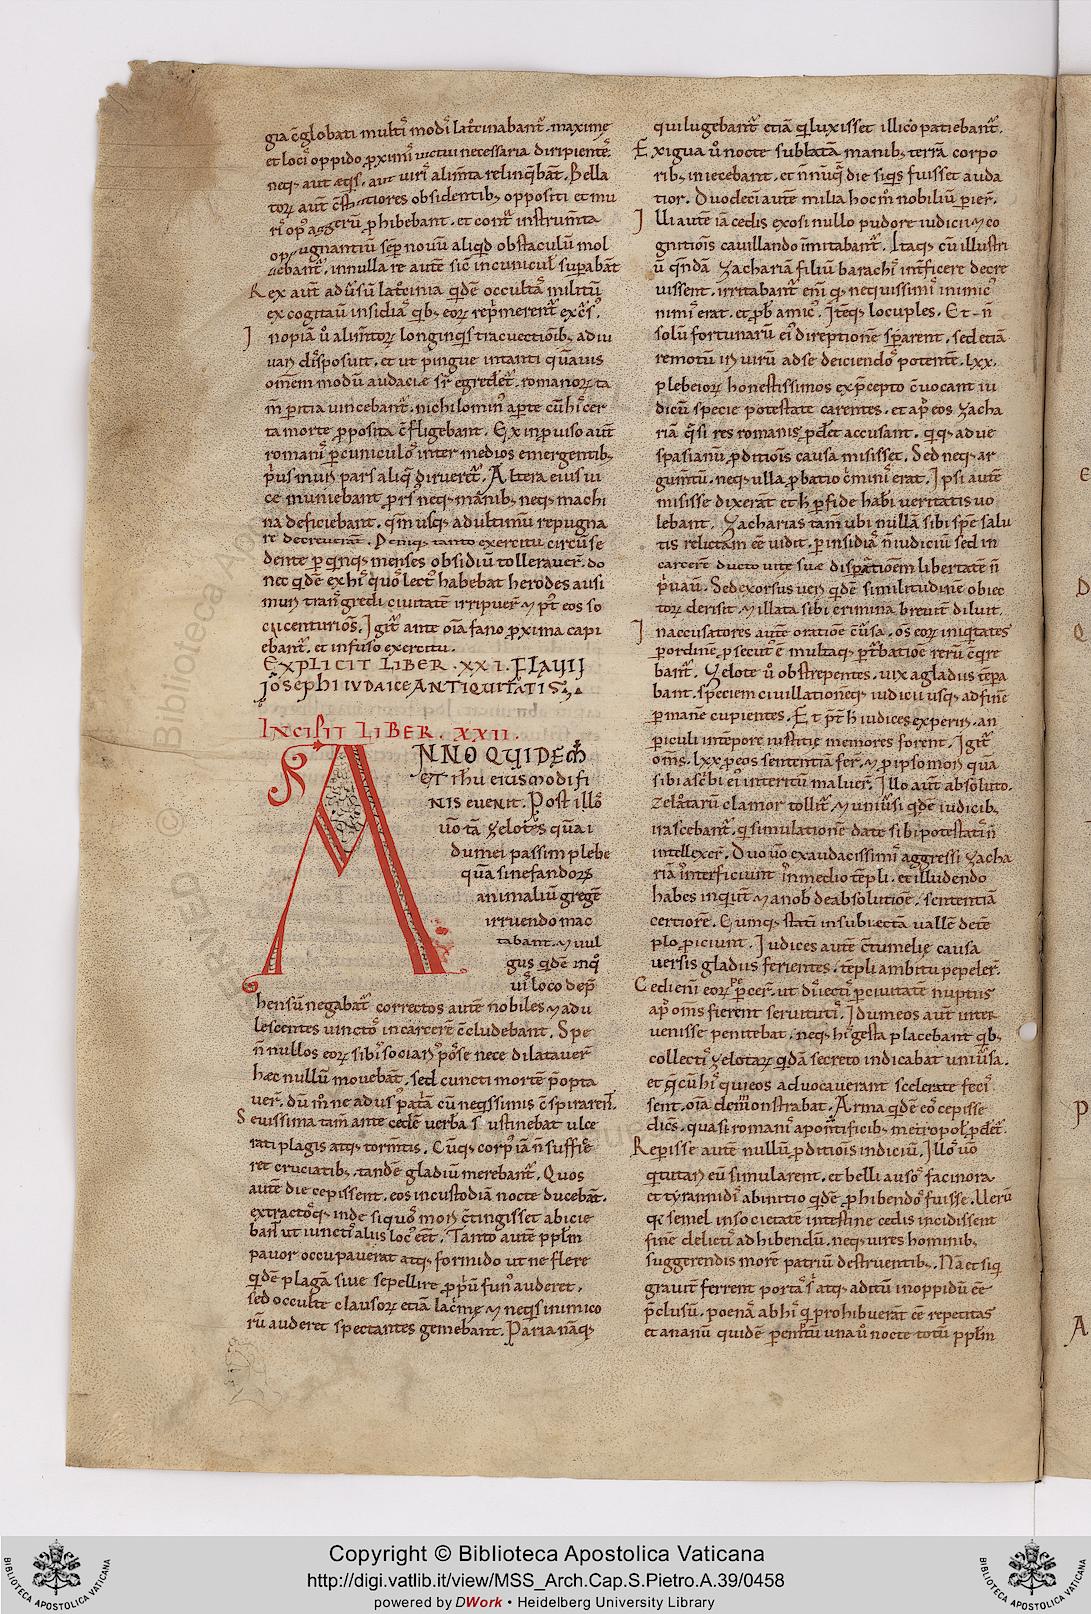 gia c̄globati multi modi lat͛cinabant͛. maxime
et loci oppido proximi uictui necessaria diripiente.
neq; aut eq̄s, aut uiri alim̄ta relinq̄bāt. Bella
toꝝ aut c̄stātiores obsidentib; oppositi et mu
ugnantiū sēp nouū aliqd obstaculū mol
iebant͛. in nulla re aute sic in cunicul superabāt
Rex aut̄ aduersū lat͛cinia qdē occulta militū
ex cogitau insidia qb; eoꝝ rep̄merent͛ exc̄s.
Inopiā u̇ alim̄toꝝ longinq̄s tracuectiōib; adiu
uan disposuit. et ut pingue
omēm modū audaciæ egredet͛. romanoꝝ ta
m̄ peritia uincebant͛. nichilomin aperte cū hi cer
ta morte proposita c̄fligebant. Ex inprouiso aut̄
romani p cuniculo inter medios emergentib;
prius muri pars aliq dirueret͛. Altera eius ui
ce muniebant prsꝰ neq; manib; neq; machi
na deficiebant. qm usq; ad ultimū repugna
re decreuerant. Deniq; tanto exercitu circūse
dente p qnq; menses obsidiū tollerauer̄. do
nec qdē ex hi quo lect habebat herodes ausi
mur trangredi ciuitatē irripuer̄ et p̄t eos so
cii centurios. Igit͛ ante oīa fano proxima capi
ebant͛. et infuso exercitu.
EXPLICIT LIBER .XXI. FLAVII
JOSEPHI IVDAICE ANTIQUITATIS;
INCIPIT LIBER. XXII.
ANNO QUIDEM
ET ihu eiusmodi fi
NIS euenit. Post illo
uo tā zelotes quā i
dumei passim plebe
qua sine fandoꝝ
animaliū gregē
irruendo mac
tabant. et uul
gus qdē inq
ui loco dep̄
hensū negabat͛ correctos autē nobiles et adu
lescentes uincto in carcerē c̄cludebant. Spe
n̄ nullos eoꝝ sibi sociari posse nece dilatauer̄
hæc nullū mouebāt. sed cuncti mortē p̄opta
uer̄. dū m̄ ne adusꝰ patā cū neqssimis c̄spiraren͛.
Seuissima tam̄ ante cede uerba sustinebat ulce
rati plagis atq; torm̄tis. Cūq; corp iā n̄ suffire
ret cruciatib;. tandē gladiū merebant͛. Quos
aute die cepissent. eos in custodiā nocte ducebāt.
extractoq; inde siquo mors c̄tingisset abicie
ban͛ ut iuncti aliis loc eēt. Tanto aute ppl̄m
pauor occupauerat atq; formido ut ne flere
qdē plagā siue sepellire propriū fun auderet.
sed occulte clausoꝝ etiā lac̄me et neqs inimico
rū auderet spectantes gemebant. Paria nāq;
qui lugebant͛ etiā q luxisset illico patiebant͛.
Exigua u̇ nocte sublatā manib; terrā corpo
rib; iniecebant. et n̄nuq̄ die siqs fuisset auda
tior. Duodeci aute milia hoc m̄ nobiliū perier̄.
Illi aute iā cedis exosi nullo pudore iudicii et co
gnitiois cauillando īmitabant͛. Itaq; cū illustri
ū q̄ndā zachariā filiū barachi int͛ficere decre
uissent. irritabant͛ eni q nequissimi inimic
nimi erat. et prob amic. Itēq; locuples. Et n̄
solū fortunarū ei direptionē sperarent. sed etiā
remotū iri uirū ad se deiciendo potentē. lxx.
plebeioꝝ honestissimos ex precepto c̄uocant iu
dicū specie potestate carentes. et apd eos zacha
riā q̄si res romanis p̄det͛ accusant. qq; ad ue
spasianū prditiois causa misisset. Sed neq; ar
gumtū. neq; ulla probatio c̄mini erat. Ipsi aute
misisse dixerāt et h̄ p fide habi ueritatis uo
lebant. Zacharias tam̄ ubi nullā sibi spē salu
tis relictam eē uidit. p insidia n̄ iudiciū sed in
carcere ducto uite suæ disperatioem libertate n̄
priuau. Sed exorsus uers qdē similitudinē obiec
toꝝ derisit et illata sibi crimina breuit͛ diluit.
In accusatores aute oratioe c̄uersa. os eoꝝ iniq̄tates
p ordine psecut͛ ē multaq; p̄t͛batioē rerū c̄q̄re
bant͛. Zelote u̇ obstrepentes. uix a gladiis tēpa
bant. speciem ciuillationeq; iudicii usq; ad finē
permanē cupientes. Et p̄t h̄ iudices experiri. an
periculi in tēpore iustitie memores forent. Igit͛
oms. lxx. p eos sententiā fer̄. et p ipso mori qua
sibi asc̄bi ei interitū maluer̄. Illo aut absoluto.
zelotarū clamor tollit͛ et uniu͛si qdē iudicib;
irascebant͛. q simulatione date sibi potestati n̄
intellexer̄. Duo uo ex audacissimi aggressi zacha
riā interficiunt in medio tēpli. et illudendo
habes inqiūt et a nob de absolutioē. sententiā
certiorē. Eumq; stati in subiectā uallē de tē
plo piciunt. Iudices aute c̄tumelie causa
uersis gladiis ferientes. tēpli ambitu pepeler̄.
Cedi eni eoꝝ peper̄. ut diuecti p ciuitatē nuptus
apd oms fierent seruituti. Idumeos aut̄ inter
uenisse penitebat. neq; hi gesta placebant qb;
collecti zelotaꝝ qdā secreto indicabat uniu͛sa.
et q̄cū hi qui eos aduocauerant scelerate feci
sent. oīa demonstrabat. Arma qdē eo cepisse
dic͛s. quasi romani a pontificib; metropol pdet͛.
Repisse aute nullū prditiois indiciū. Illo uo
q tutari eū simularent. et belli auso facinora
et tyrannidi ab initio qdē prohibendo fuisse. Uerū
q semel in societate intestine cedis incidissent
fine delicti adhibendū. neq; uires hominib;
suggerendis morē patriū destruentib;. Nā et siq
grauit͛ ferrent portas atq; aditū in oppidū eē
p̄clusū. poenā ab hi q prohibuerāt eē repetitas
et ananū quidē peremptū una u̇ nocte totū ppl̄m
Copyright © Biblioteca Apostolica Vaticana
http://digi.vatlib.it/view/MSS_Arch.Cap.S.Pietro.A.39/0458
powered by DWork • Heidelberg University Library